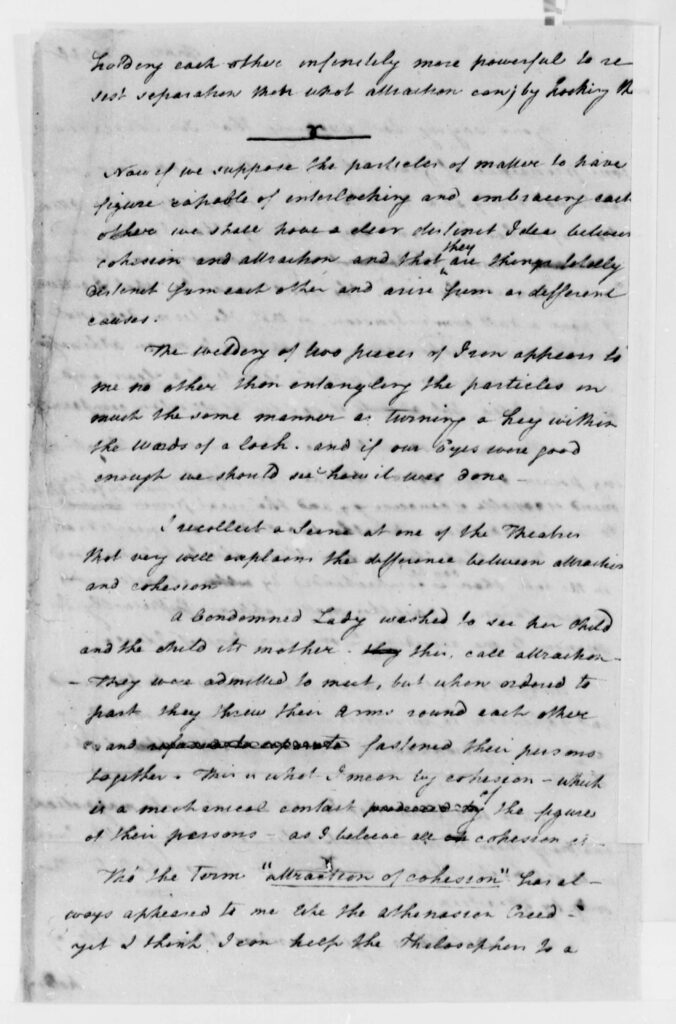 holding each other infinitely more powerful to re-
sist separation than what attraction can; by hooking the
x
Now if we suppose the particles of matter to have
figure capable of interlocking and embracing each
other we shall have a clear distinct Idea between
cohesion and attraction and that they are things totally
distinct from each other and arise from as different
causes.
The welding of two pieces of Iron appears to
me no other than entangling the particles in
much the same manner as turning a key within
the wards of a lock. and if our Eyes were good
enough we should see how it was done -
I recollect a Scene at one of the Theatres
that very well explains the difference between attraction
and cohesion
A Condemned Lady wished to see her Child
and the child its mother. they this, call attraction -
- They were admitted to meet, but when ordered to
part they threw their Arms round each other
and refused to separate fastened their persons
together. This is what I mean by cohesion - which
is a mechanical contact produced by of the figures
of their persons - as I believe all cohesion is -
Tho' the term "attraction of cohesion" has al-
ways appeared to me like the athanasian Creed -
yet I think I can help the Philosophers to a